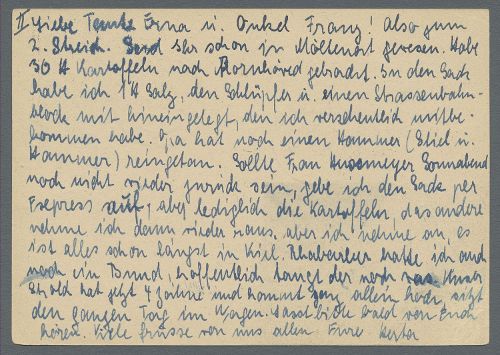 II Liebe Tante Erna u. Onkel Franz! Also zum
2. Streich. Seid Ihr schon in Möltenort gewesen. Habe
30 H Kartoffeln nach Bornhöved gebracht. In den Sack
habe ich 1 H Salz, den Schlüpfer u. einen Strassenbahn-
block mit hineingelegt, den ich versehentlich mitbe-
kommen habe. Opa hat noch einen Hammer (Stiel u.
Hammer) reingetan. Sollte Frau Husemeyer Sonnabend
noch nicht wieder zurück sein, gebe ich den Sack per
Express auf, aber lediglich die Kartoffeln, das andere
nehme ich dann wieder raus, aber ich nehme an, es
ist alles schon längst in Kiel. Rhabarber hatte ich auch
noch ein Bund, hoffentlich taugt der noch was. Unser
hat jetzt 4 Zähne und kommt ganz allein hoch, sitzt
den ganzen Tag im Wagen. Lasst bitte bald von Euch
hören. Viele Grüsse von uns allen Eure Herta